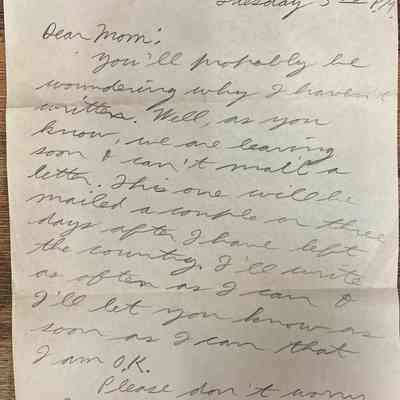 Tuesday
Dear Mom:
You'll probably be
woundering why I haven't
written. Well, as you
know, we are leaving
soon & can't mail a
letter. This one will be
mailed a couple or three
days after I have left
the country. I'll write
as often as I can &
I'll let you know as
soon as I can that
I am O.K.
Please don't worry